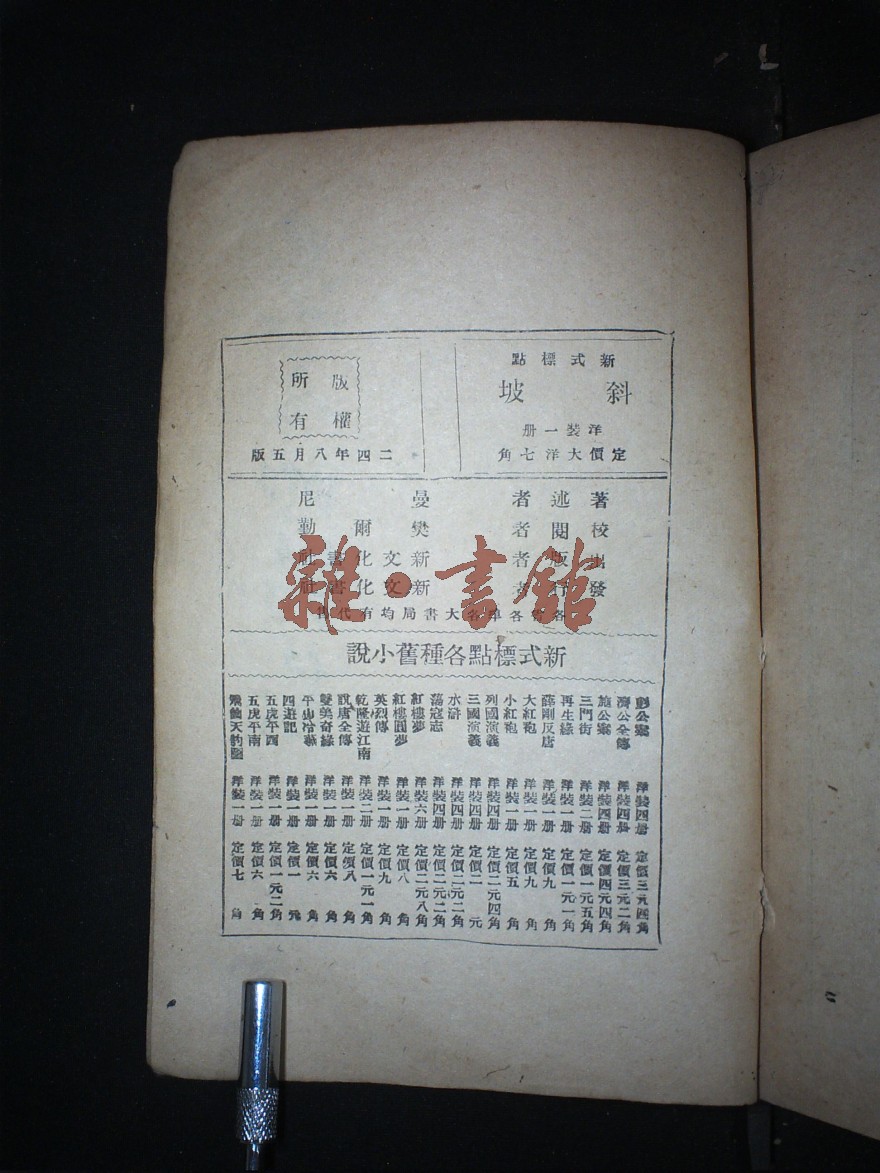 新式標點
斜坡
洋裝一册
定價大洋七角
版權
所有
二四年八月五版
著述者 曼尼
校閱者 樊爾勤
出版者 新文化書社
發行者 新文化書社
各省各埠各大書局均有代售
雜·書館
新式標點各種舊小說
彭公案 洋裝四册 定價三元四角
濟公全傳 洋裝四册 定價三元二角
施公案 洋裝四册 定價四元四角
三門街 洋裝二册 定價一元五角
再生緣 洋裝一册 定價一元一角
薛剛反唐 洋裝一册 定價九角
大紅袍 洋裝一册 定價九角
小紅袍 洋裝一册 定價五角
列國演義 洋裝四册 定價二元四角
三國演義 洋裝四册 定價二元
水滸 洋裝四册 定價二元二角
蕩寇志 洋裝四册 定價二元二角
紅樓夢 洋裝六册 定價二元八角
紅樓圓夢 洋裝一册 定價八角
英烈傳 洋裝一册 定價九角
乾隆遊江南 洋裝二册 定價一元一角
說唐全傳 洋裝一册 定價八角
雙美奇緣 洋裝一册 定價六角
平山冷燕 洋裝一册 定價六角
四遊記 洋裝一册 定價一元
五虎平西 洋裝一册 定價一元二角
五虎平南 洋裝一册 定價六角
天豹圖 洋裝一册 定價七角